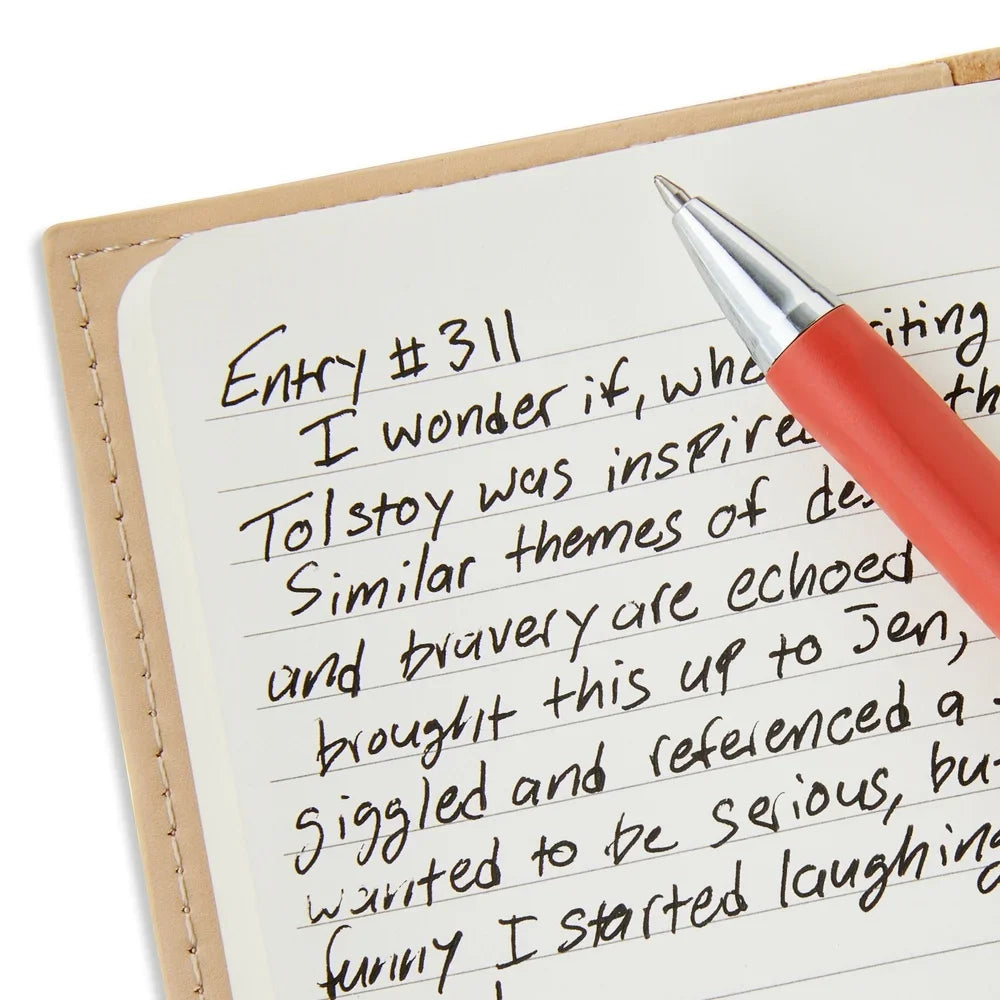 Entry #311
I wonder if, writing
Tolstoy was inspired th
Similar themes of des
and bravery are echoed
brought this up to Jen,
giggled and referenced a
wanted to be serious, but
funny I started laughing